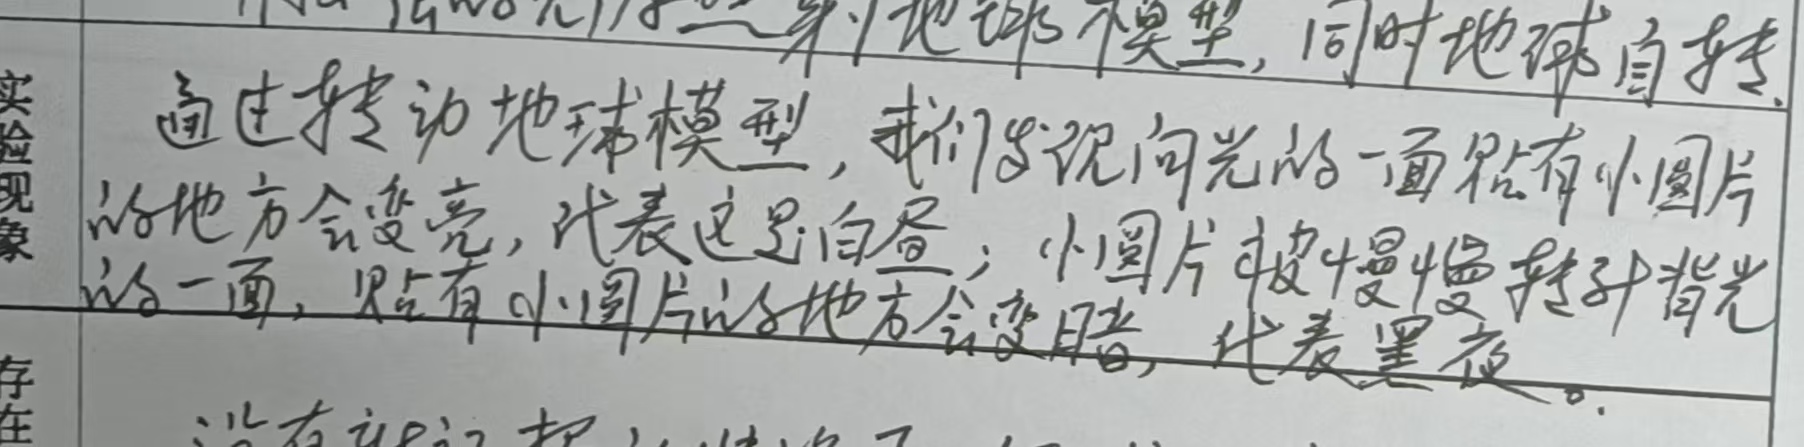 照射地球模型,同时地球自转.
实验现象
通过转动地球模型,我们发现向光的一面贴有小圆片
的地方会变亮,代表这是白昼;小圆片被慢慢转到背光
的一面,贴有小圆片的地方会变暗,代表黑夜。
存在
没有